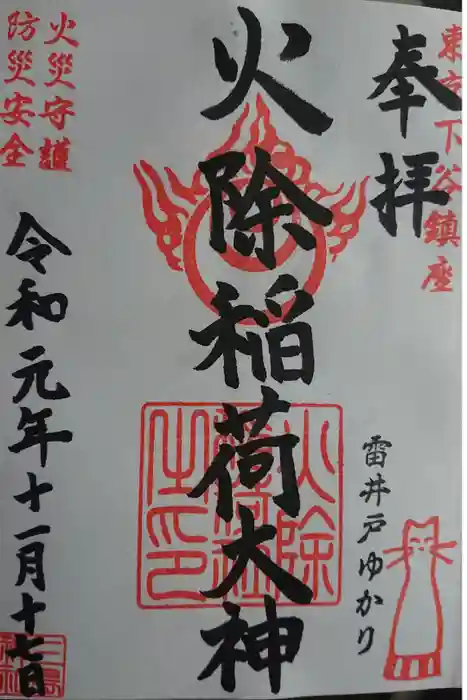 東京下谷鎮座
奉拝
雷井戸ゆかり
火除稲荷大神
火除
稲荷社
之印
火災守護
防災安全
令和元年十一月十七日